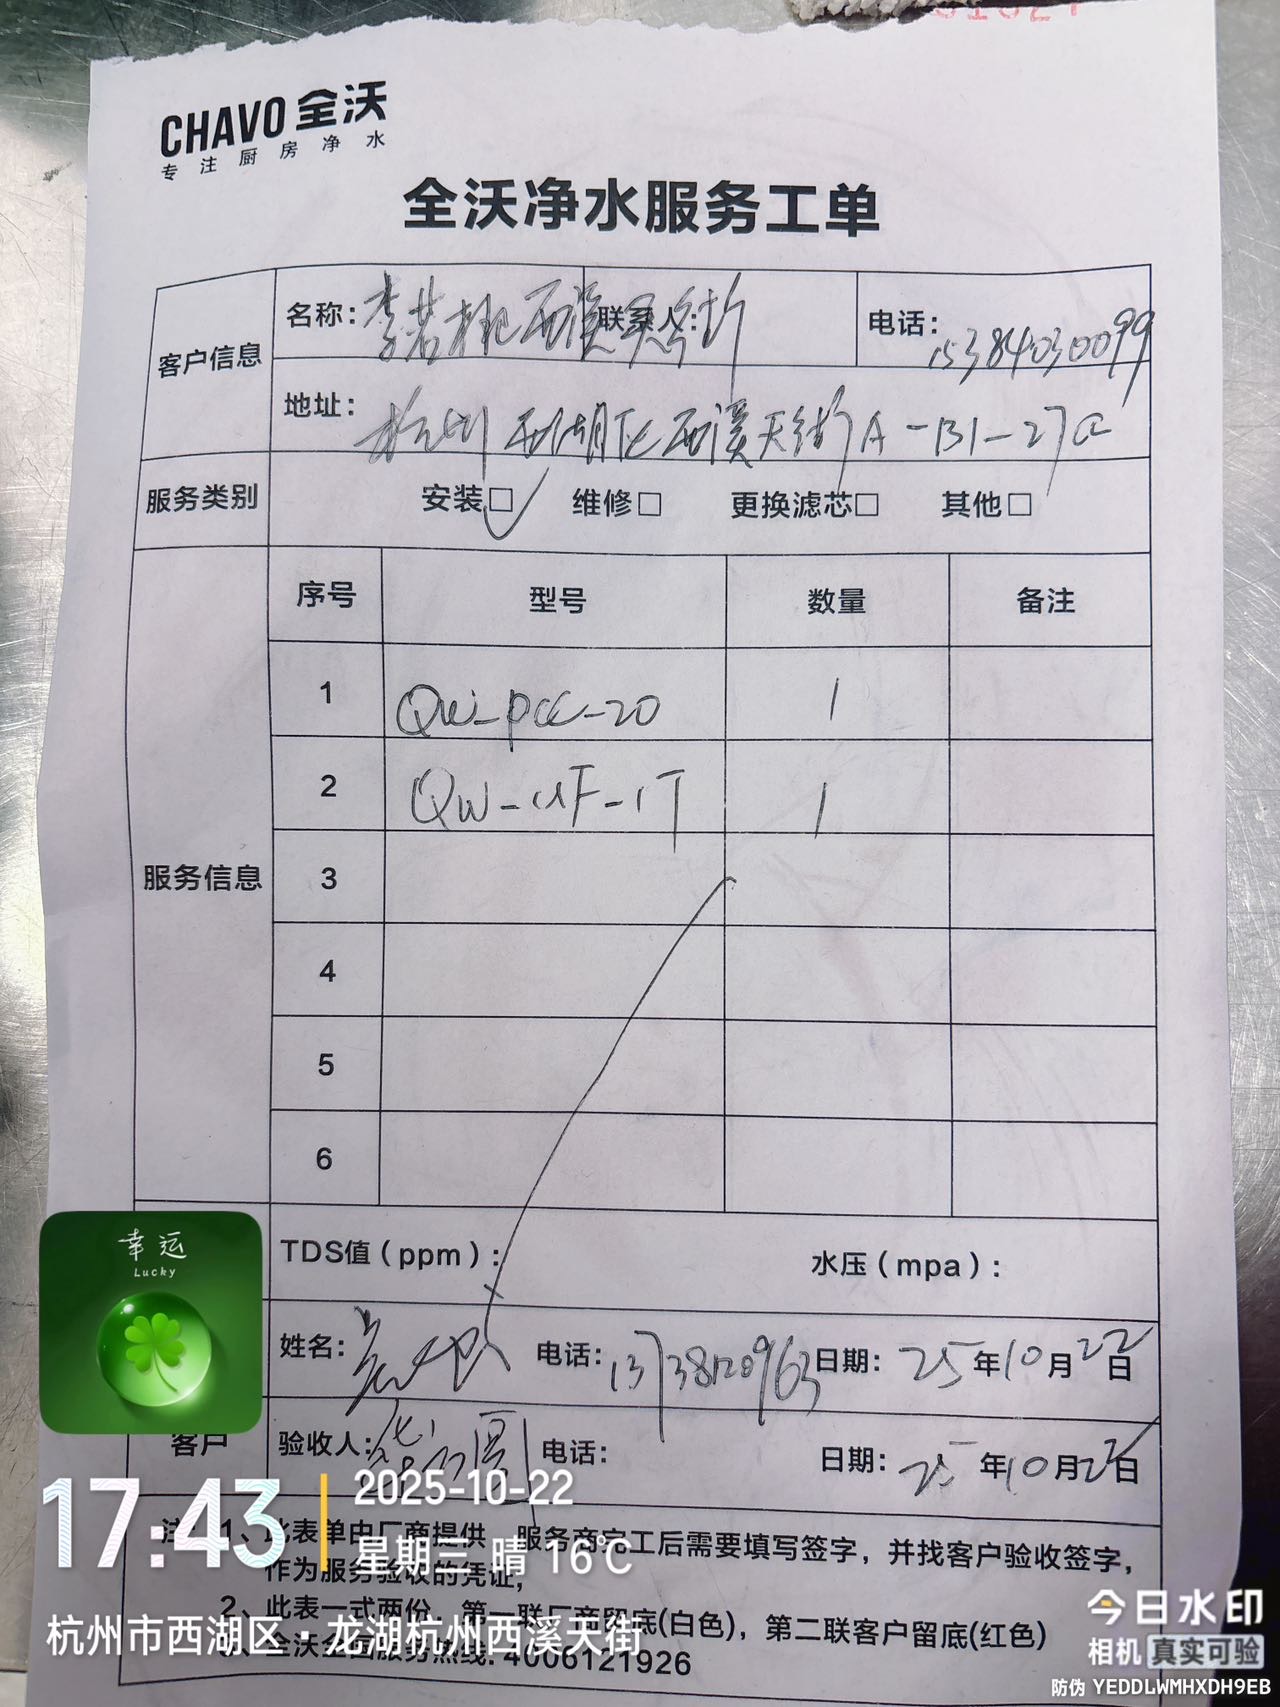 CHAVO 全沃
专注厨房净水
全沃净水服务工单
客户信息
名称：李若桃西溪天街 联系人： 电话：15384030099
地址：杭州西湖区西溪天街A-B1-27a
服务类别 安装□ 维修□ 更换滤芯□ 其他□
服务信息
序号 型号 数量 备注
1 QW-PCC-20 1
2 QW-UF-1T 1
3
4
5
6
TDS值（ppm）： 水压（mpa）：
姓名： 电话：13738120963 日期：25年10月22日
客户 验收人： 电话： 日期：25年10月22日
1、此表单由厂商提供 服务商完工后需要填写签字，并找客户验收签字，
作为服务验收的凭证；
2、此表一式两份，第一联厂商留底(白色)，第二联客户留底(红色)
全沃全国服务热线：4006121926
幸运
Lucky
17:43
2025-10-22
星期三 晴 16℃
杭州市西湖区·龙湖杭州西溪天街
今日水印
相机 真实可验
防伪 YEDDLWMHXDH9EB